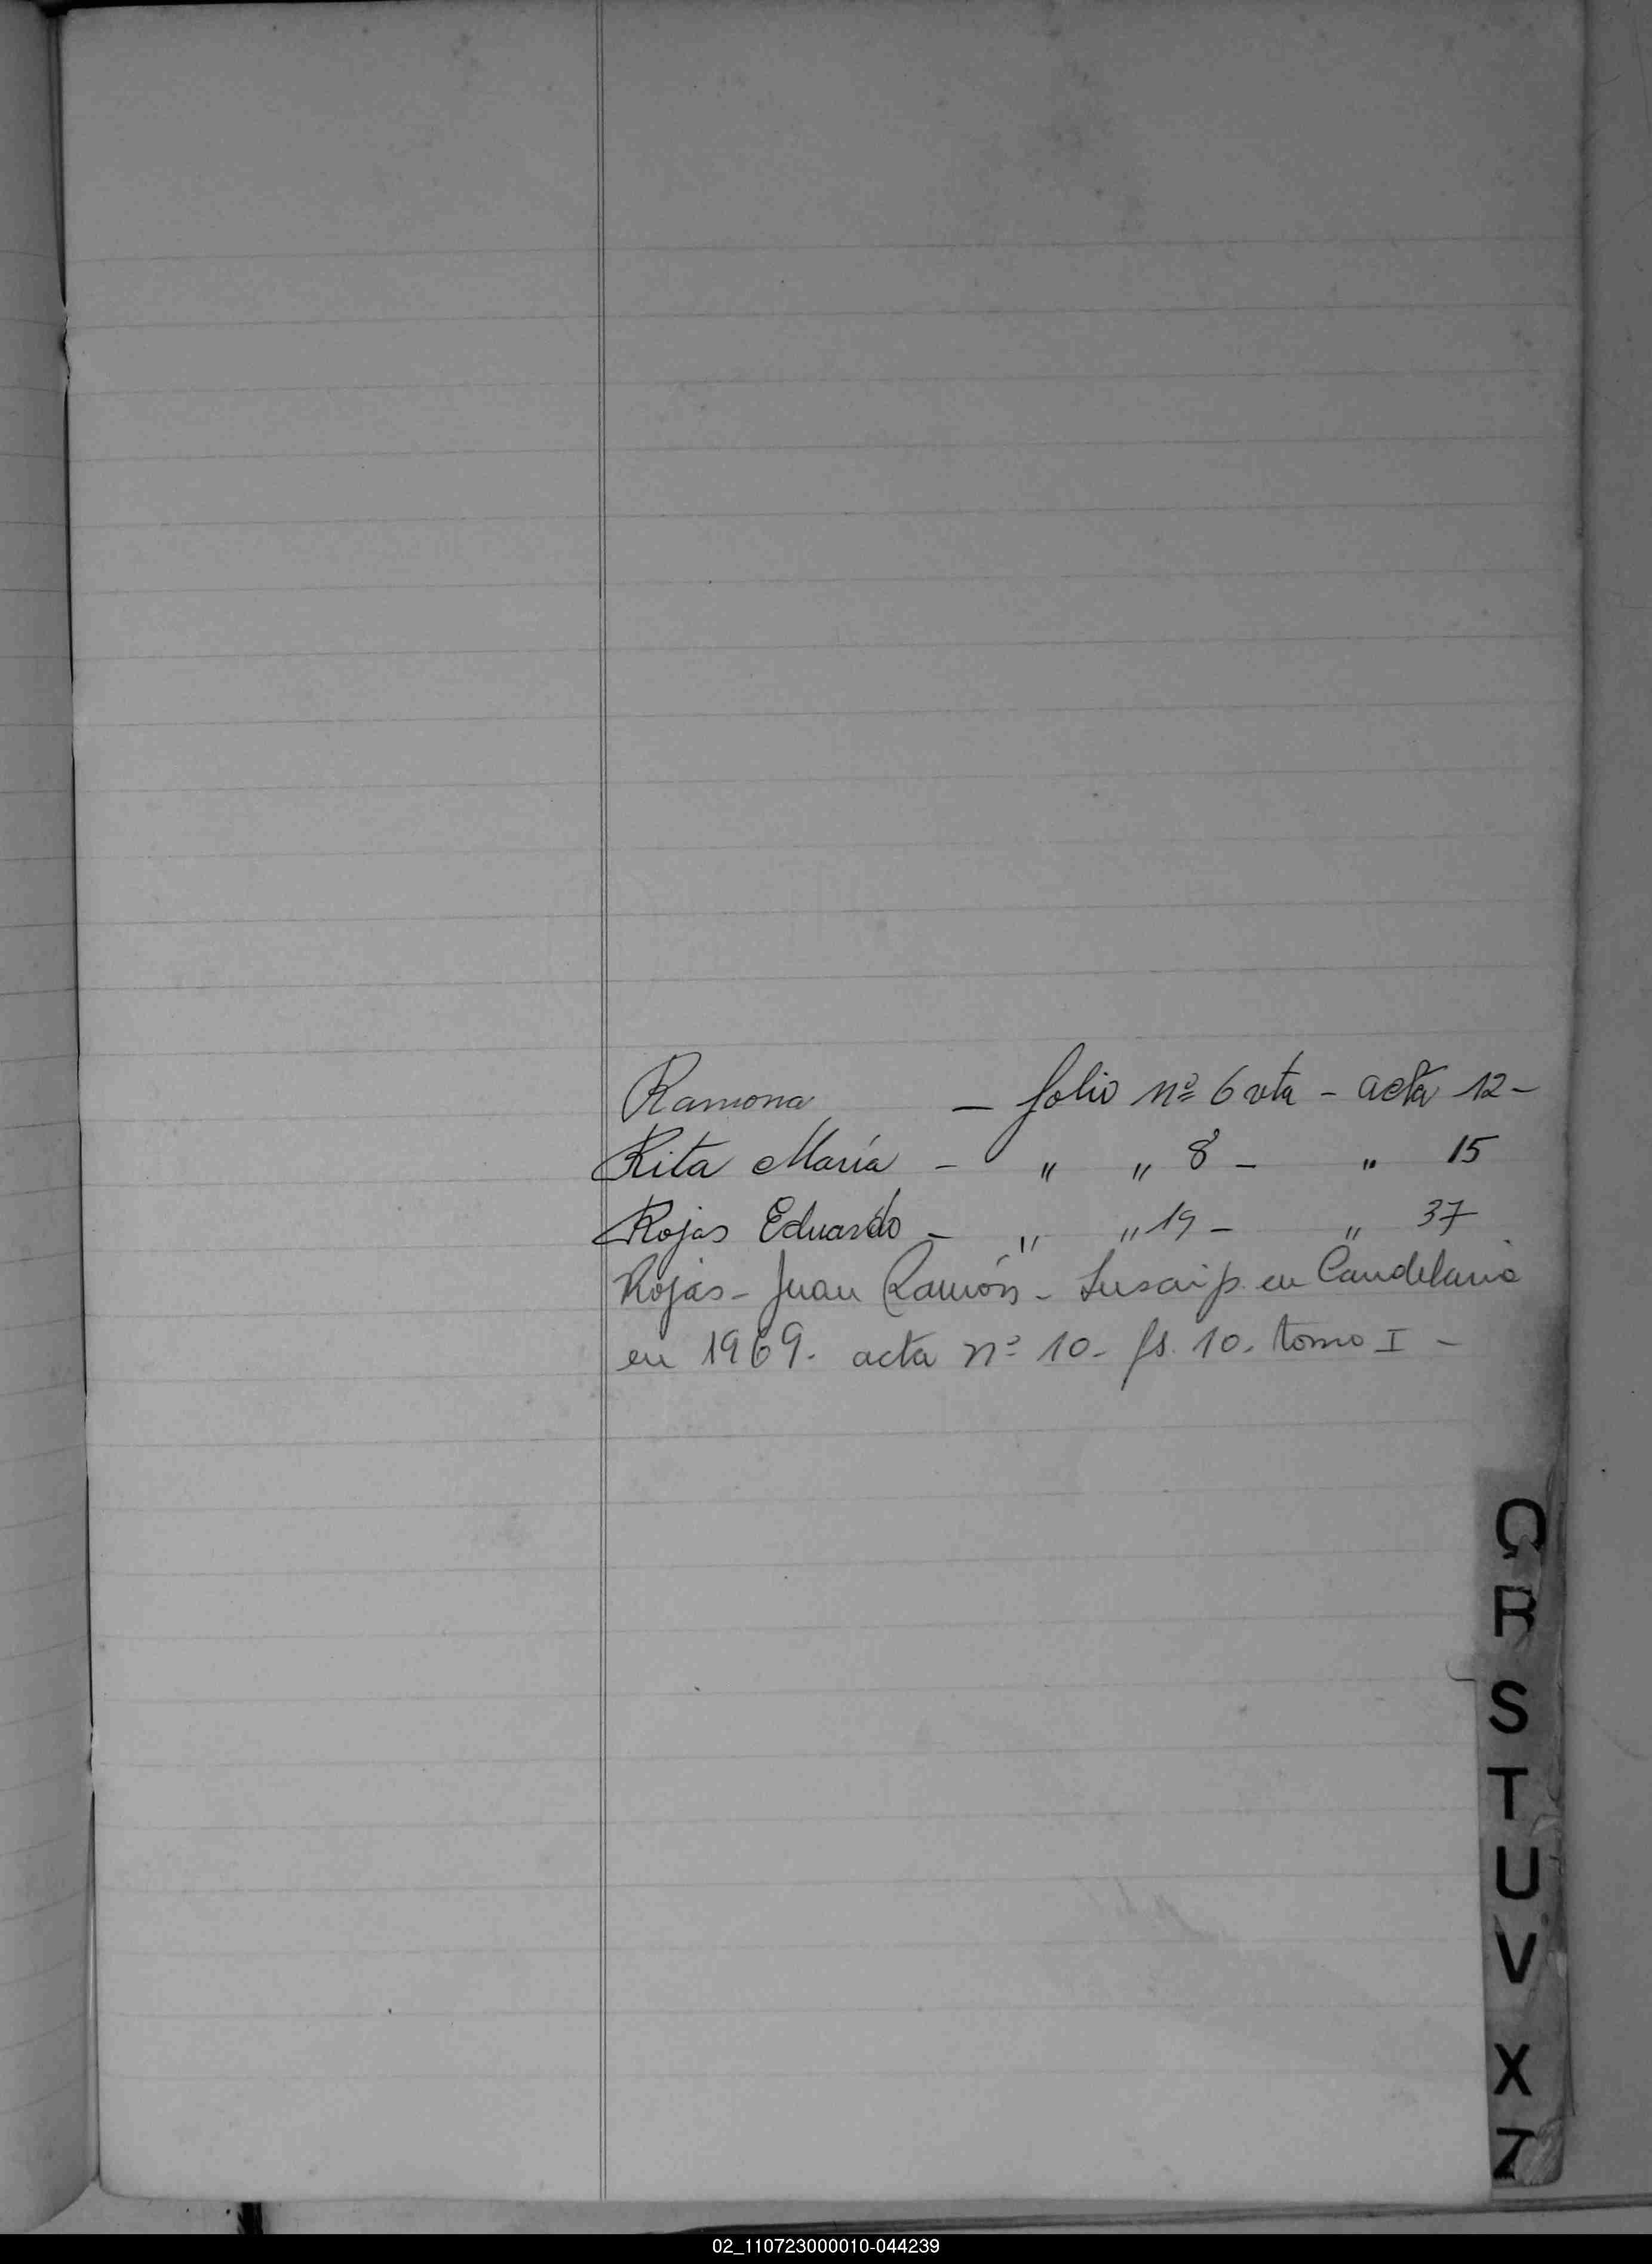 Ramona — folio nº 6 vta - acta 12 -
Rita María - " " 8 - " 15
Rojas Eduardo - " " 19 - " 37
Rojas - Juan Ramón - Inscrip. en Candelaria
en 1969. acta nº 10 - fs. 10. tomo I -
Q
R
S
T
U
V
X
Z
02_110723000010-044239